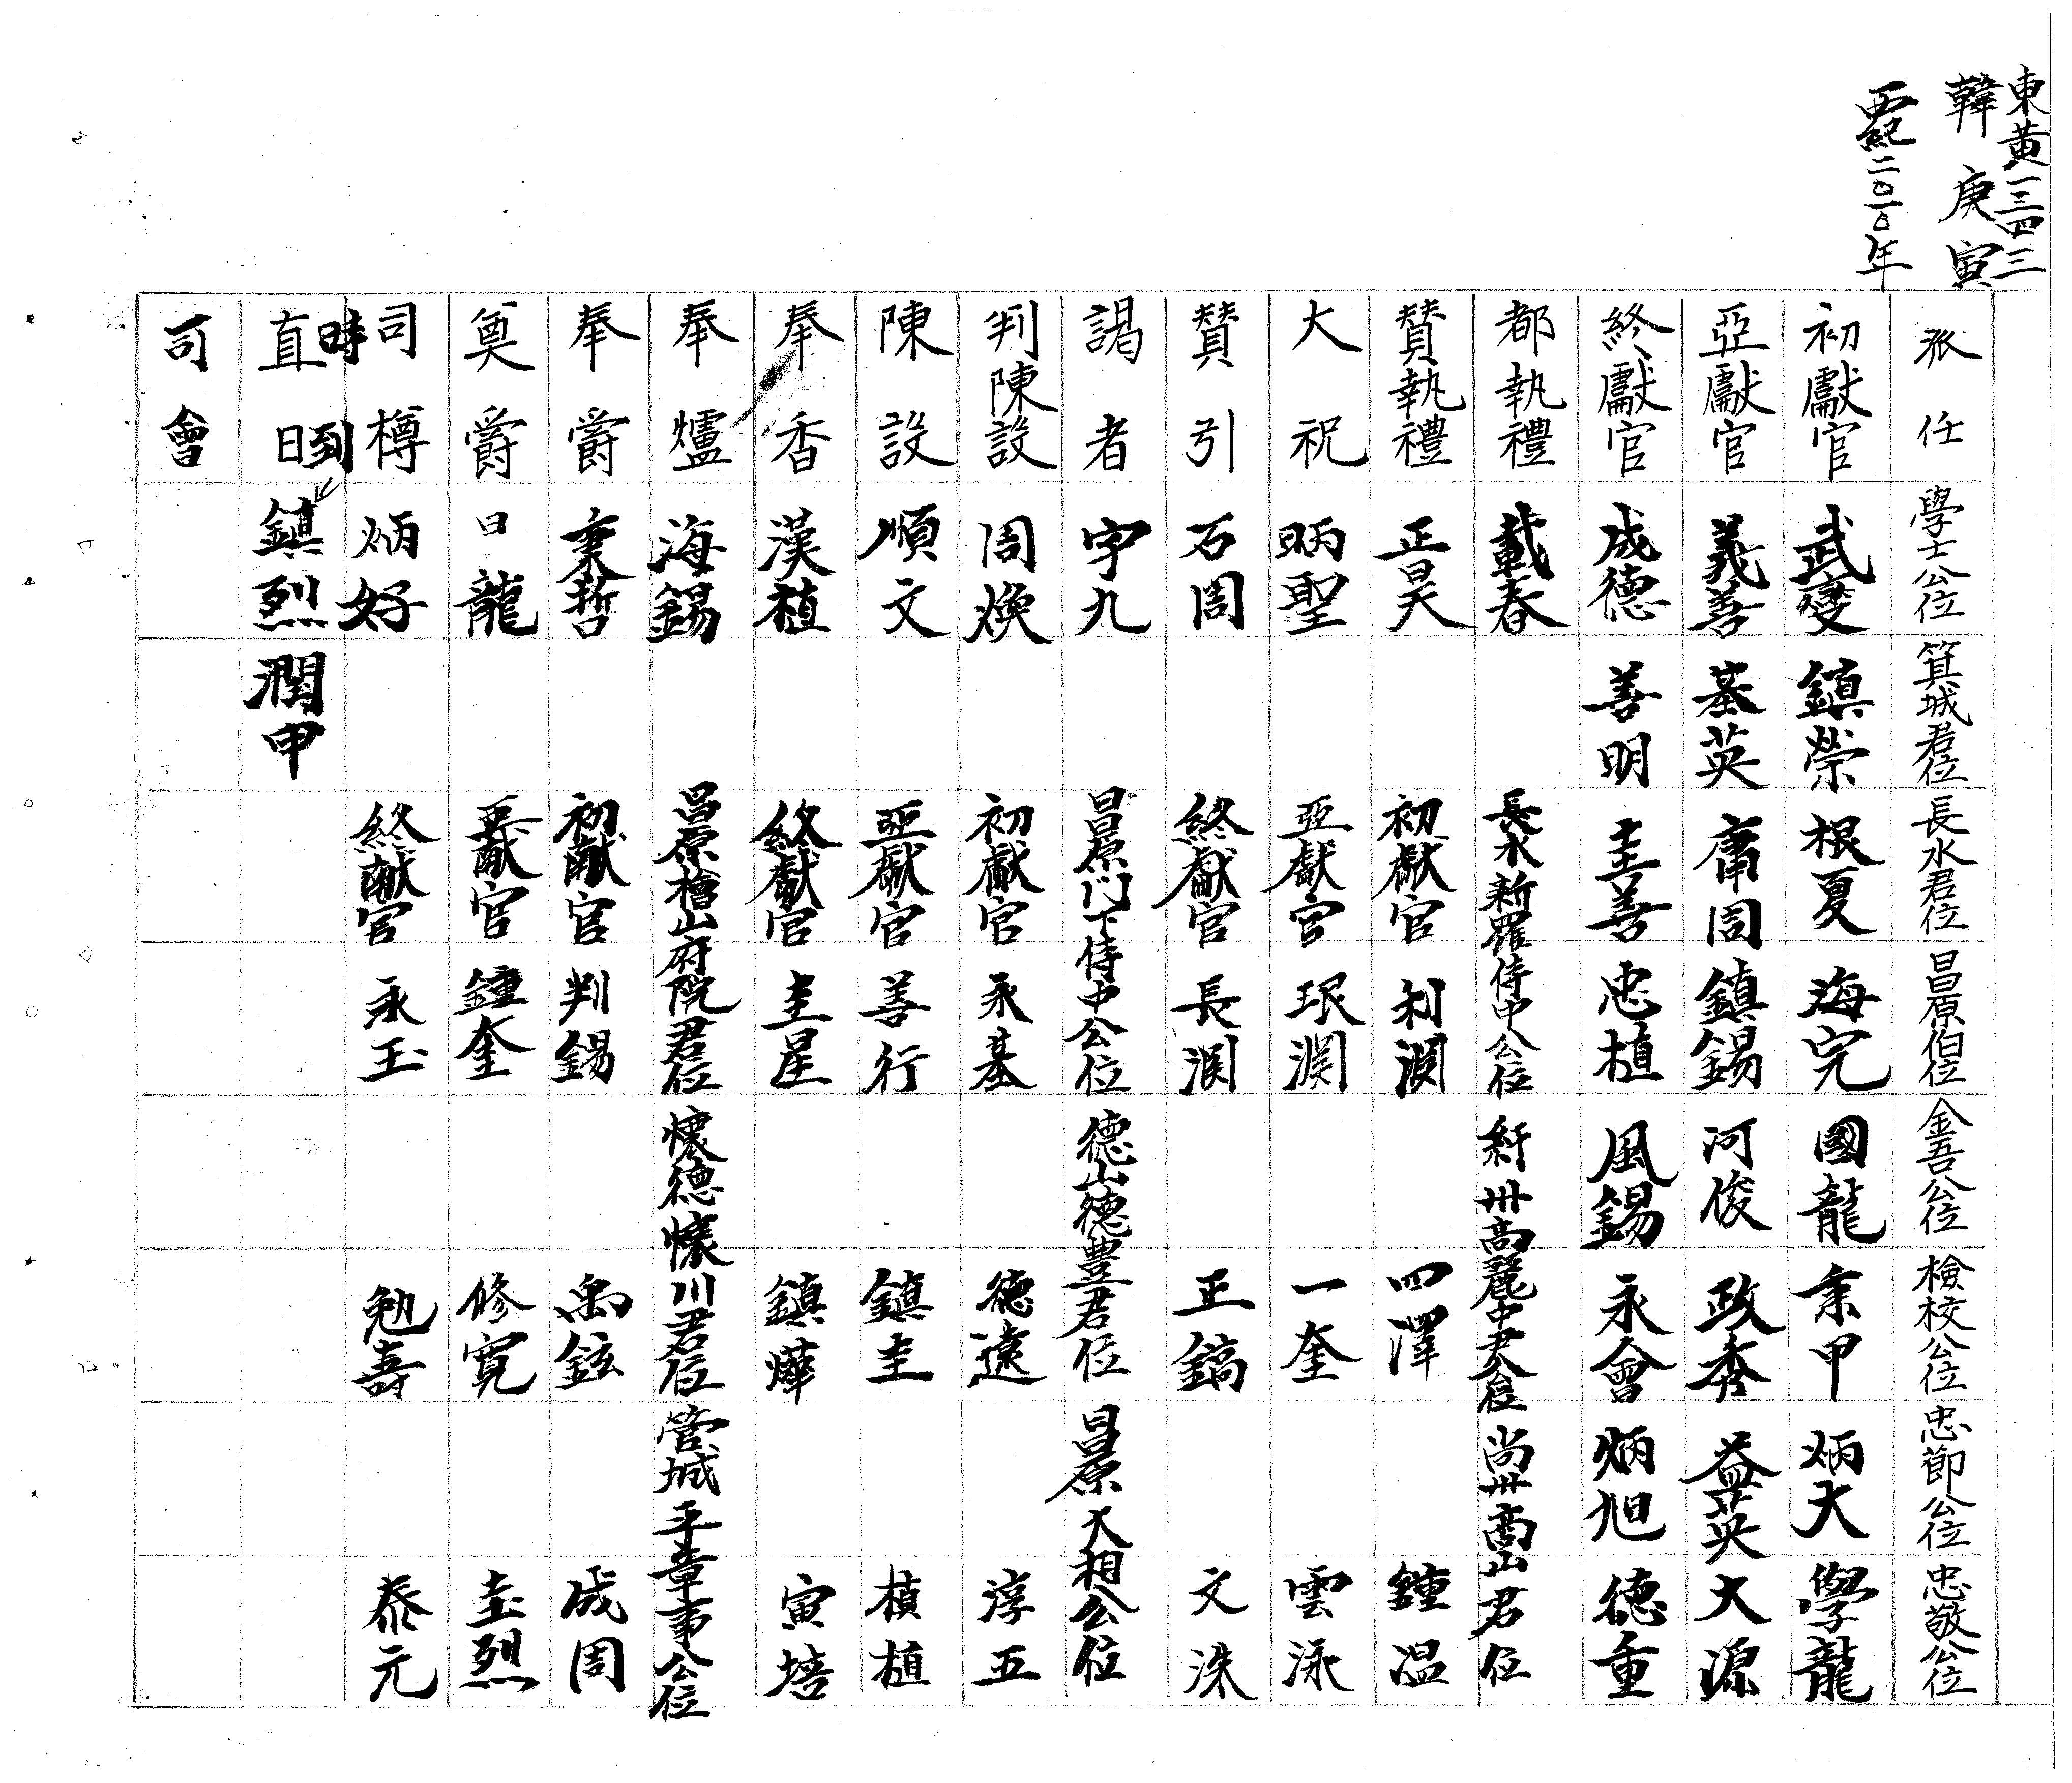 東黃一三四三
韓庚寅
西紀二〇一〇年
派任 學士公位 箕城君位 長水君位 昌原伯位 金吾公位 檢校公位 忠節公位 忠敬公位
初獻官 武燮 鎮榮 根夏 海完 國龍 秉甲 炳大 學龍
亞獻官 義善 基英 甫周 鎮錫 河俊 政秀 益英 大源
終獻官 成德 善明 圭善 忠植 風錫 永會 炳旭 德重
都執禮 載春 長水新羅侍中公位 紆州高麗中尹公位 尚州商山君位
贊執禮 正昊 初獻官 利淵 四澤 鍾温
大祝 昞聖 亞獻官 珉淵 一奎 雲泳
贊引 石周 終獻官 長淵 正鎬 文洙
謁者 宇九 昌原門下侍中公位 德山德豊君位 昌原大相公位
判陳設 周煥 初獻官 永基 德遠 淳五
陳設 順文 亞獻官 善行 鎮圭 植植
奉香 漢植 終獻官 圭星 鎮燁 寅培
奉爐 海錫 昌原檜山府院君位 懷德懷川君位 管城平章事公位
奉爵 秉哲 初獻官 判錫 禹鉉 成周
奠爵 日龍 亞獻官 鍾奎 修寬 圭烈
司樽 炳好 終獻官 永玉 勉壽 泰元
時到
直日 鎮烈 潤甲
司會